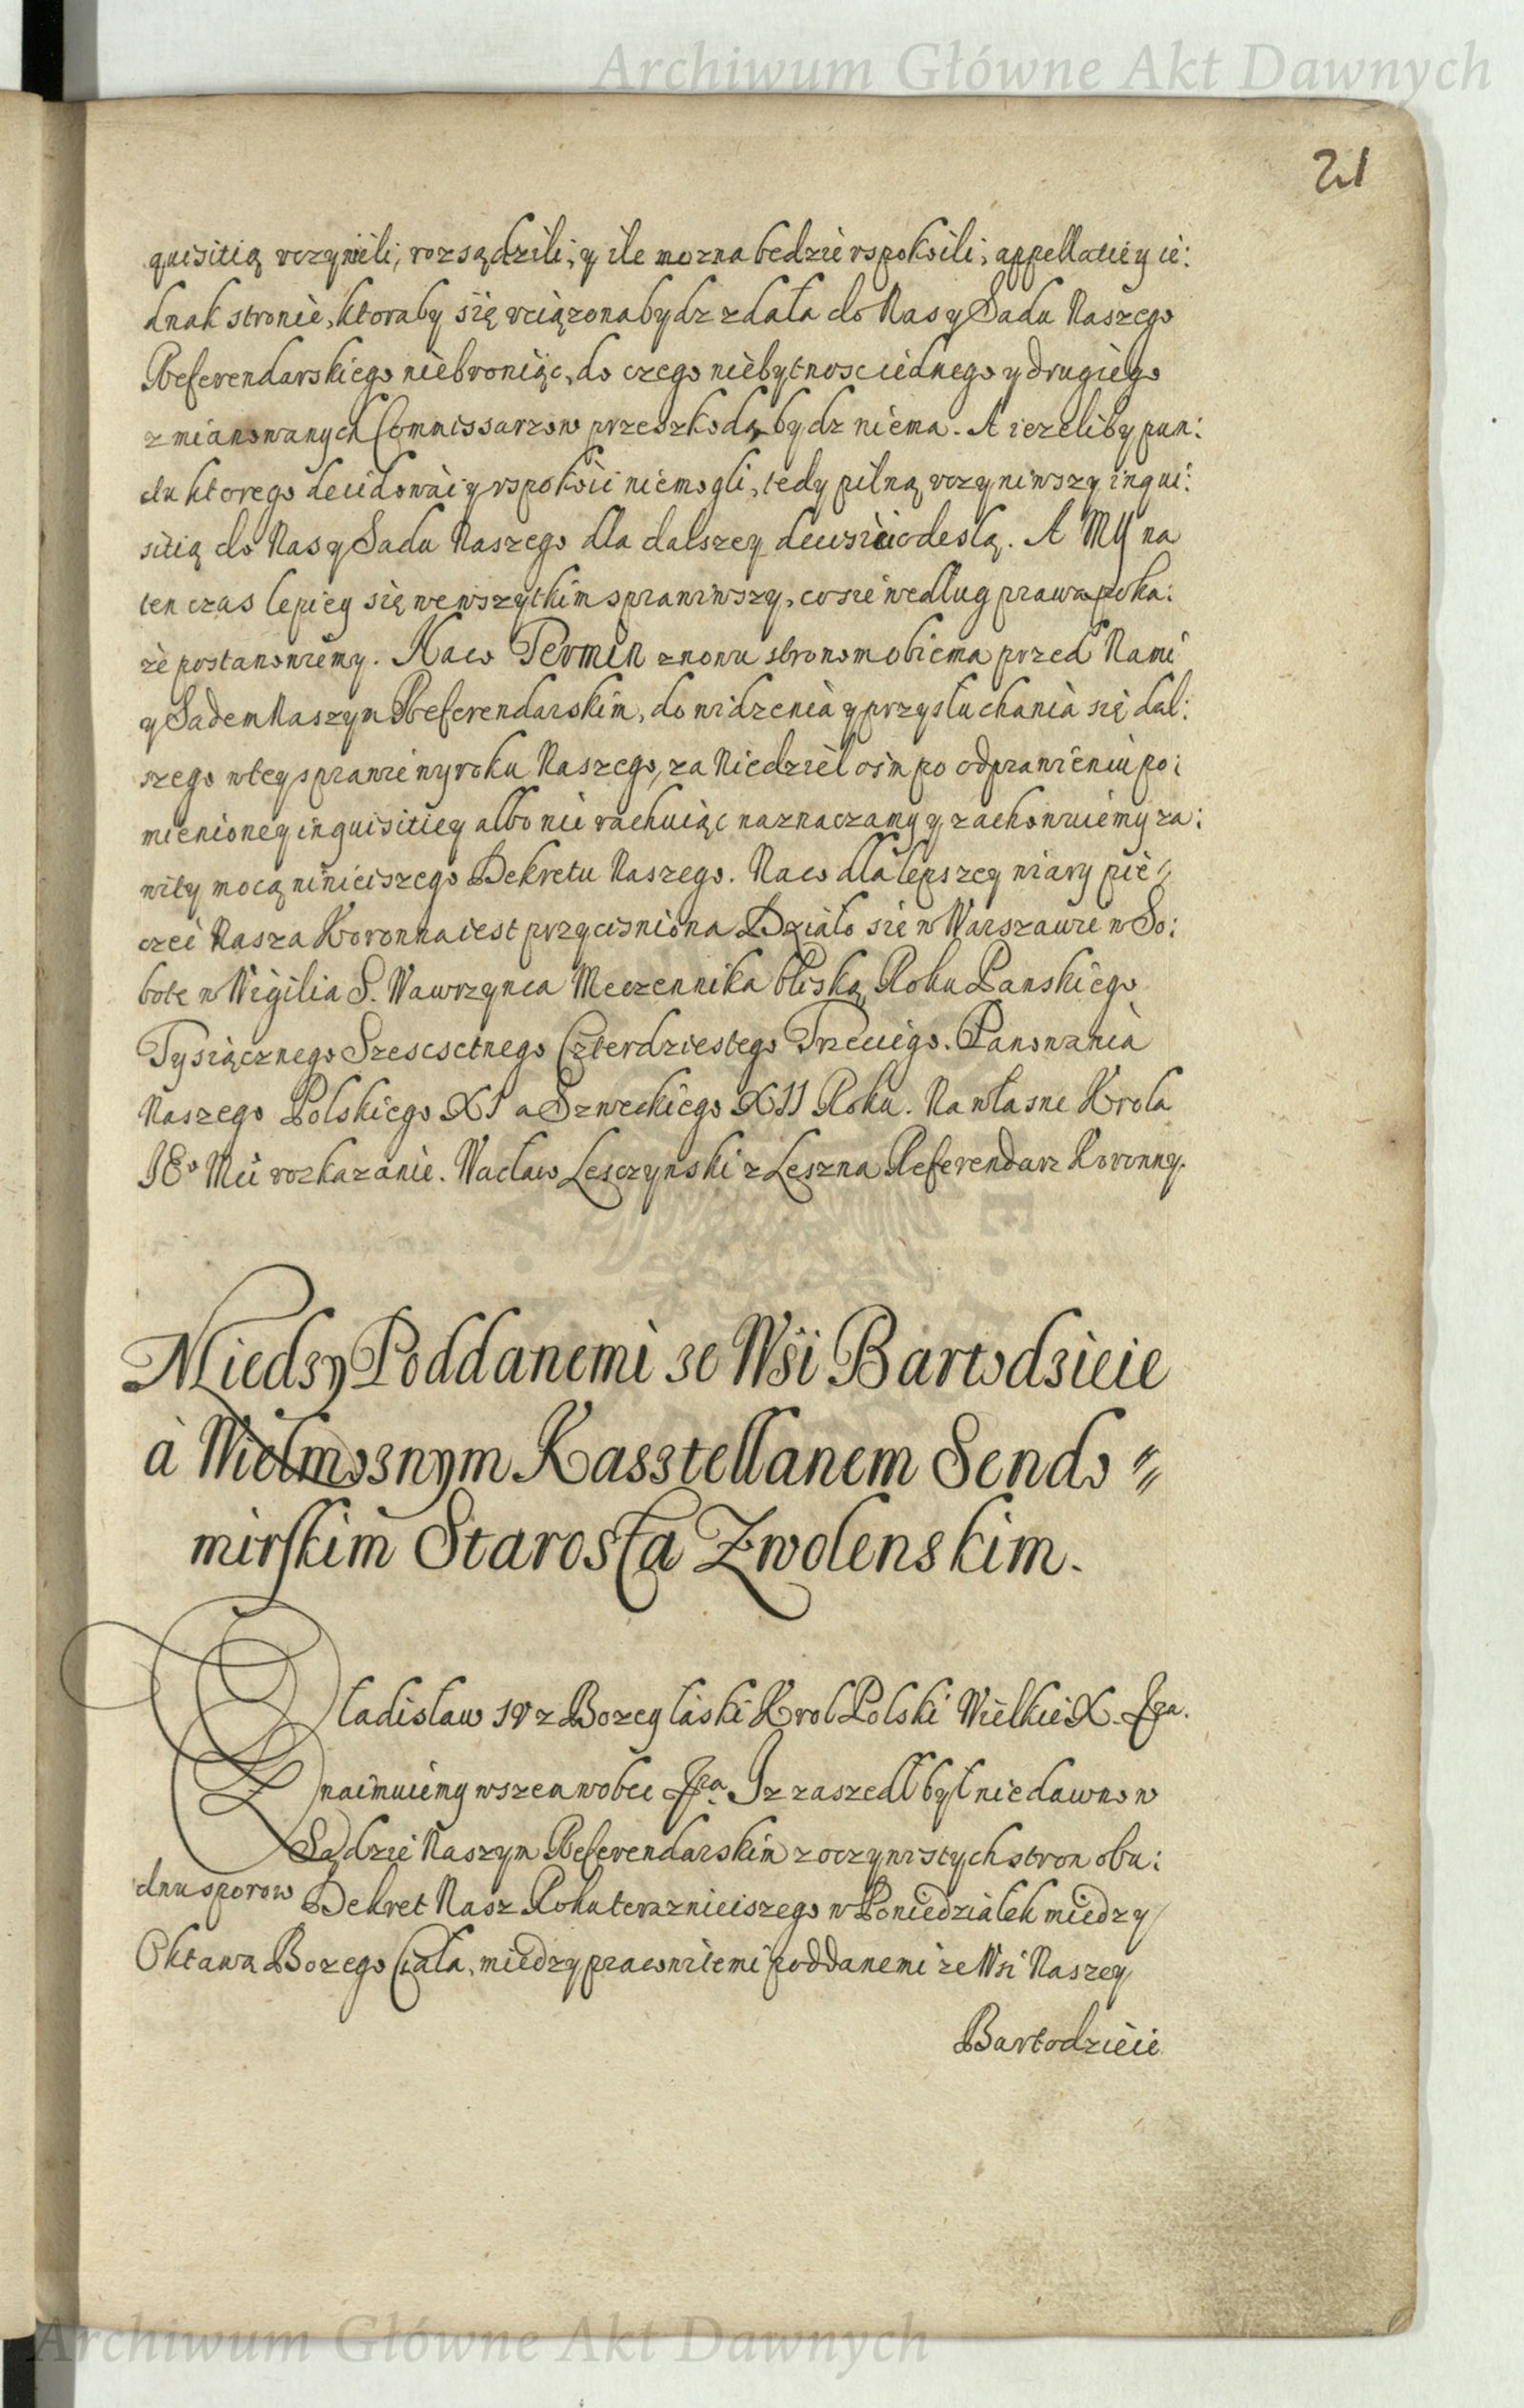 Archiwum Główne Akt Dawnych
21
quisitią vczynili, rozsądzili, y ile mozna bedzie vspokoili, appellatiey ie:
dnak stronie, ktoraby się vciązona bydz zdała do Nas y Sadu Naszego
Referendarskiego niebroniąc, do czego niebytnosc iednego y drugiego
zmianowanych Commissarzow przeszkodą bydz niema. A iezeliby pun:
ctu ktorego decidowai y vspokoić niemogli, tedy pilną vczyniwszy inqui:
sitią do Nas y Sadu Naszego dla dalszey decisiei odesłą. A MY na
ten czas lepiey się wewszytkim sprawiwszy, co sie według prawa poka:
że postanowiemy. Naco Termin znowu stronom obiema przed Nami
y Sadem Naszym Referendarskim, do widzenia y przysłuchania się dal:
szego wtey sprawie wyroku Naszego, za Niedziel osm po odprawieniu po:
mienioney inquisitiey albo nie rachuiąc naznaczamy y zachowuiemy za:
wity mocą ninieiszego Dekretu Naszego. Naco dla lepszey wiary pie:
częć Nasza Koronna iest przyciśniona. Działo sie w Warszawie w So:
botę w Wigilia S. Wawrzynca Meczennika bliską Roku Panskiego
Tysiącznego Szescsetnego Czterdziestego Trzeciego. Panowania
Naszego Polskiego XI a Szweckiego XII Roku. Na własne Krola
JE° Mci rozkazanie. Wacław Lesczynski z Leszna Referendarz Koronny.
Miedzy Poddanemi ze Wsi Bartodzieie
à Wielmoznym Kasztellanem Sendo
mirskim Starosta Zwolenskim.
Wladislaw IV z Bozey łaski Krol Polski Wielkie X. &ca.
Znaimuiemy wszem wobec &ca. Iz zaszedł był niedawno w
Sądzie Naszym Referendarskim z oczywistych stron obu:
dnu sporow Dekret Nasz Roku teraznieiszego w Poniedziałek miedzy
Oktawa Bozego Ciała, miedzy pracowitemi poddanemi ze Wsi Naszey
Bartodzieie
Archiwum Główne Akt Dawnych